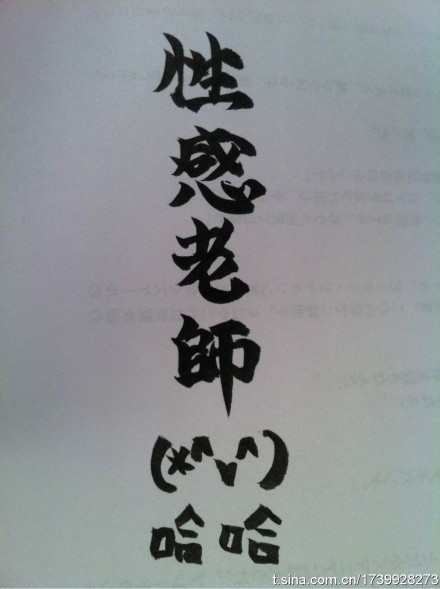 性感老師
(*^v^)
哈哈
t.sina.com.cn/1739928273